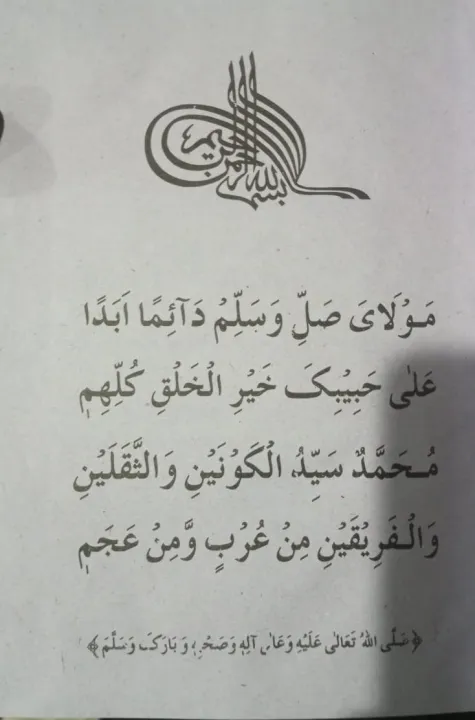 بسم الله الرحمن الرحيم
مَوْلَایَ صَلِّ وَسَلِّمْ دَآئِمًا اَبَدًا
عَلٰی حَبِیْبِکَ خَیْرِ الْخَلْقِ کُلِّهِمٖ
مُحَمَّدٌ سَیِّدُ الْکَوْنَیْنِ وَالثَّقَلَیْنِ
وَالْفَرِیْقَیْنِ مِنْ عُرْبٍ وَّمِنْ عَجَمٖ
﴿صَلَّی اللهُ تَعَالٰی عَلَیْهِ وَعَلٰی آلِهٖ وَصَحْبِهٖ وَبَارَکَ وَسَلَّمَ﴾